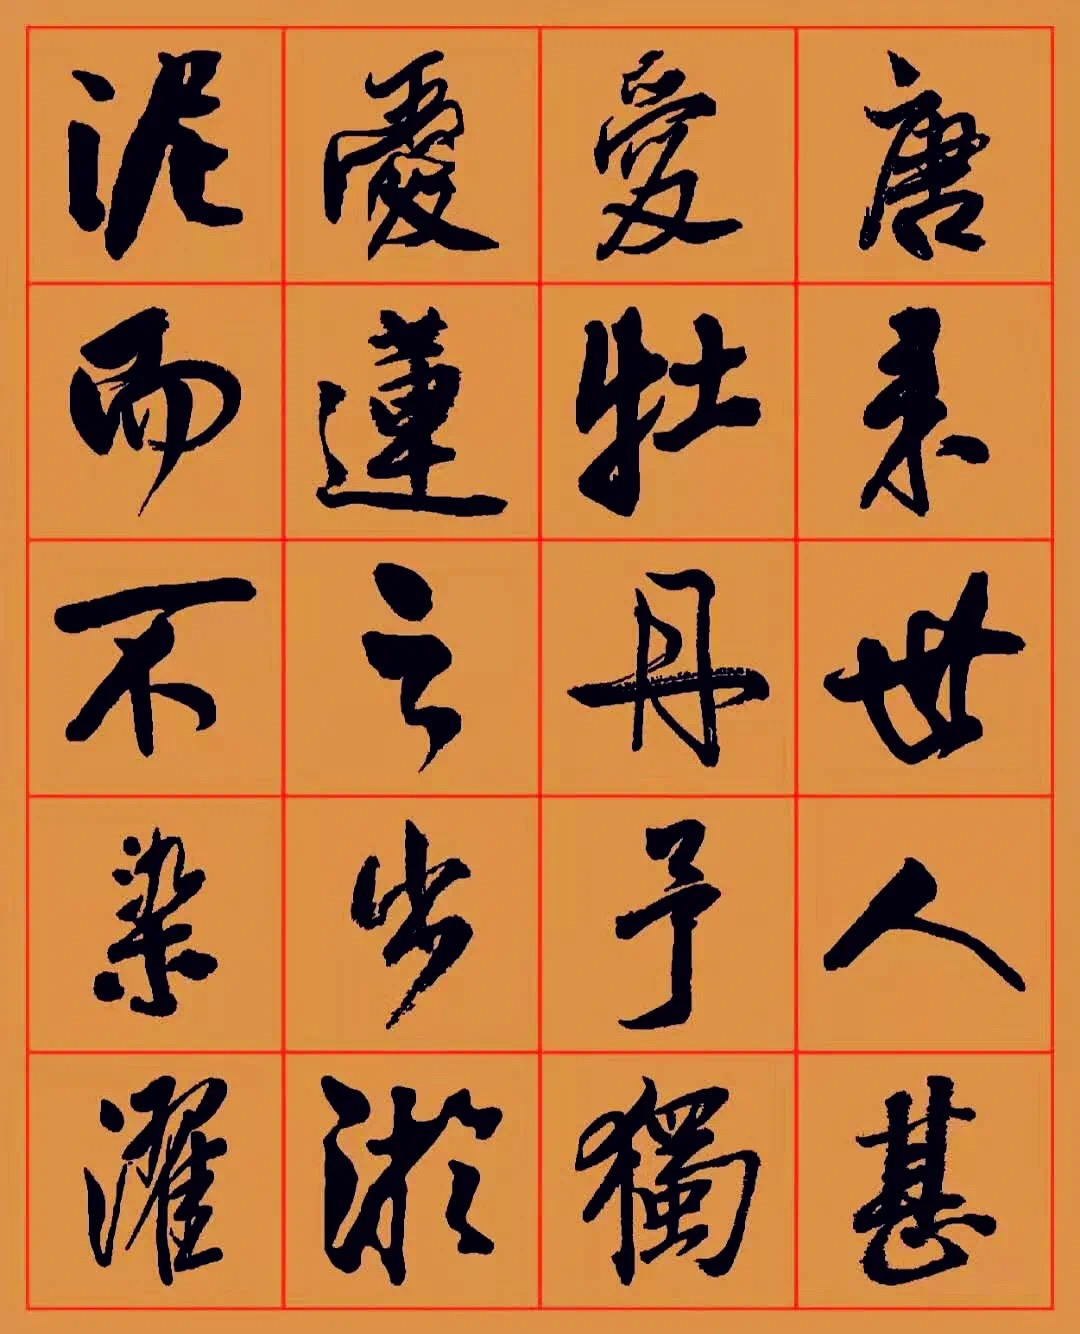 唐来世人甚
愛牡丹予獨
愛蓮之出淤
泥而不染濯